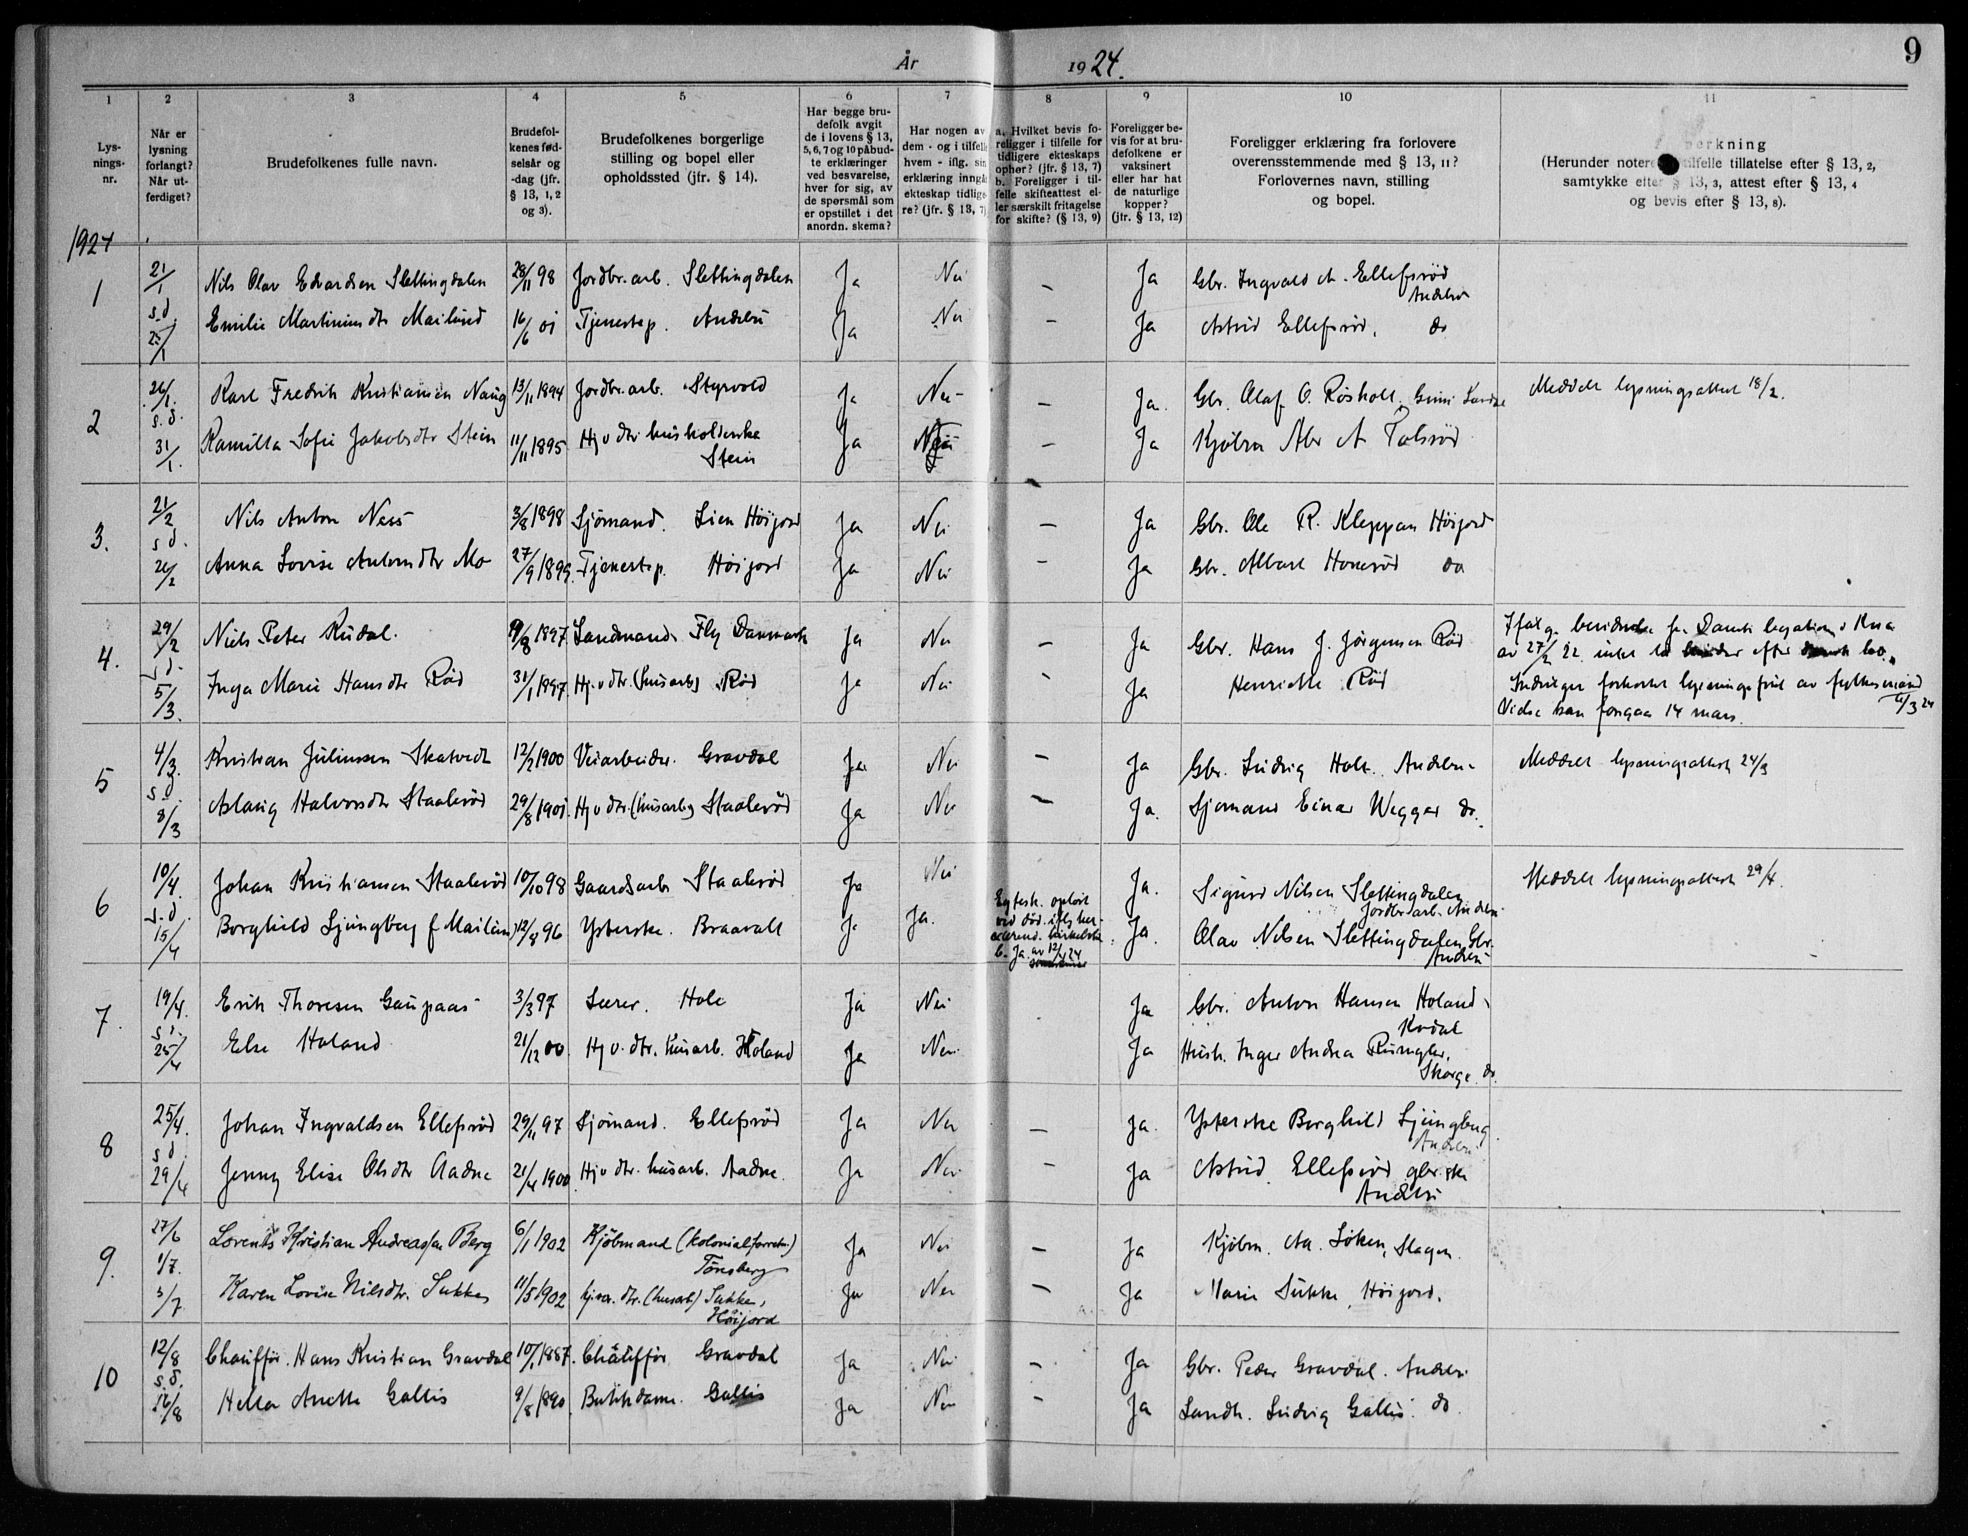 År 1924.
9
1 2 3 4 5 6 7 8 9 10 11
Lys-
nings-
nr.
Når er
lysning
forlangt?
Når ut-
ferdiget?
Brudefolkenes fulle navn.
Brudefol-
kenes fød-
selsår og
-dag (jfr.
§ 13, 1, 2
og 3).
Brudefolkenes borgerlige
stilling og bopel eller
opholdssted (jfr. § 14).
Har begge bru-
defolk avgit
de i lovens § 13,
5, 6, 7 og 10 påbud-
te erklæringer
ved besvarelse,
hver for sig, av
de spørsmål som
er opstillet i det
anordn. skema?
Har nogen av
dem - og i tilfelle
hvem - iflg. sin
erklæring inngå
ekteskap tidlige-
re? (jfr. § 13, 7)
a. Hvilket bevis fo-
religger i tilfelle for
tidligere ekteskaps
ophør? (jfr. § 13, 7)
b. Foreligger i til-
felle skifteattest el-
ler særskilt fritagelse
for skifte? (§ 13, 9)
Foreligger be-
vis for at bru-
defolkene er
vaksinert
eller har hat
de naturlige
kopper?
(jfr. § 13, 12)
Foreligger erklæring fra forlovere
overensstemmende med § 13, 11?
Forlovernes navn, stilling
og bopel.
erkning
(Herunder noteres tilfelle tillatelse efter § 13, 2,
samtykke efter § 13, 3, attest efter § 13, 4
og bevis efter § 13, 8).
1924
1 21/1 Nils Olav Edvardsen Slettingdalen 28/11 98 Jordbr.arb. Slettingdalen Ja Nei - Ja Gbr. Ingvald A. Ellefsrød
Andebu
s.d. Emilie Martiniusdtr Mailund 16/6 01 Tjenestep. Andebu Ja Nei - Ja Astrid Ellefsrød, do
25/1
2 26/1. Karl Fredrik Kristiansen Naug 13/11 1894 Jordbr.arb. Styrvold Ja Nei - Ja. Gbr. Olaf O. Røsholt, Meddelt lysningsattest 18/2.
s.d. Kamilla Sofie Jakobsdtr Stein 11/11 1895 Hjv dtr husholderske Ja Nei - Ja Kjøbm Abr A Tolsrød
31/1. Stein
3. 21/2 Nils Anton Ness 3/8 1898 Sjømand. Lien Høijord Ja Nei - Ja Gbr. Ole R. Kleppan Høijord
s d. Anna Lovise Antonsdtr Mo 27/9 1899. Tjenestep. Høijord Ja Nei - Ja Gbr. Albert Honerød do
26/2
4. 29/2 Niels Peter Rudal. 9/8 1897. Landmand. Fly Danmark Ja Nei - Ja Gbr. Hans J. Jørgensen Rød
s.d. Inga Marie Hansdtr Rød 31/1 1897. Hjv dtr. (husarb) Rød Ja Nei - Ja Henriette Rød
5/3.
av 27/2 22 intet
forkortet lysningsfrist av fylkesmand
11/3 24
Vielse kan foregaa 14 mars.
5 4/3. Kristian Juliussen Skatvedt 12/2 1900 Veiarbeider. Gravdal Ja Nei - Ja Gbr. Ludvig Holt. Andebu Meddelt lysningsattest 24/3
s.d. Aslaug Halvorsdtr Staalerød 29/8 1901. Hjv dtr. (husarb) Staalerød Ja Nei - Ja. Sjømand Einar Wegger do.
8/3
6 10/4. Johan Kristiansen Staalerød 10/10 98 Gaardsarb Staalerød Ja Nei Ja. Sigurd Nilsen Slettingdalen Meddelt lysningsattest 29/4.
Jordbr arb. Andebu
s.d. Borghild Ljungberg f Mailund 12/8 96 Ysterske. Braavall Ja Ja. Ja. Olav Nilsen Slettingdalen, Gbr.
Andebu
15/4
Egtesk. opløst
ved død.
b. Ja av 12/4 24
7. 19/4. Erik Thoresen Gaupaas 3/3 97 Lærer. Hole Ja Nei Ja Gbr. Anton Hansen Holand
Kodal
s.d. Else Holand 21/12 00. Hjv. dtr. husarb. Holand Ja Nei. Ja Hush. Inger Andrea
Skorge do.
25/4
8 25/4. Johan Ingvaldsen Ellefsrød 29/11 97 Sjømand. Ellefsrød Ja Nei - Ja. Ysterske Borghild Ljungberg.
Andebu
s d. Jenny Elise Olsdtr Aadne 21/4 1900. Hjv dtr. husarb. Aadne. Ja Nei - Ja Astrid Ellefsrød gbr.ske
Andebu
29/4
9. 27/6 Lorents Kristian Andreassen Berg 6/1 1902 Kjøbmand (kolonialforretn.) Ja Nei - Ja Kjøbm. Aa. Løken, Slagen.
Tønsberg
1/7. Karen Lovise Nilsdtr. Sukke 11/5 1902 hjv. dtr. (husarb) Sukke, Ja Nei - Ja Marie Sukke, Høijord.
Høijord
3/7
10 12/8 Chauffør. Hans Kristian Gravdal 10/1 1887. Chauffør Gravdal Ja Nei - Ja Gbr. Peder Gravdal. Andebu
s.d. Helba Anette Gallis 9/8 1890. Butikdame. Gallis Ja Nei - Ja Landh. Ludvig Gallis. do
16/8